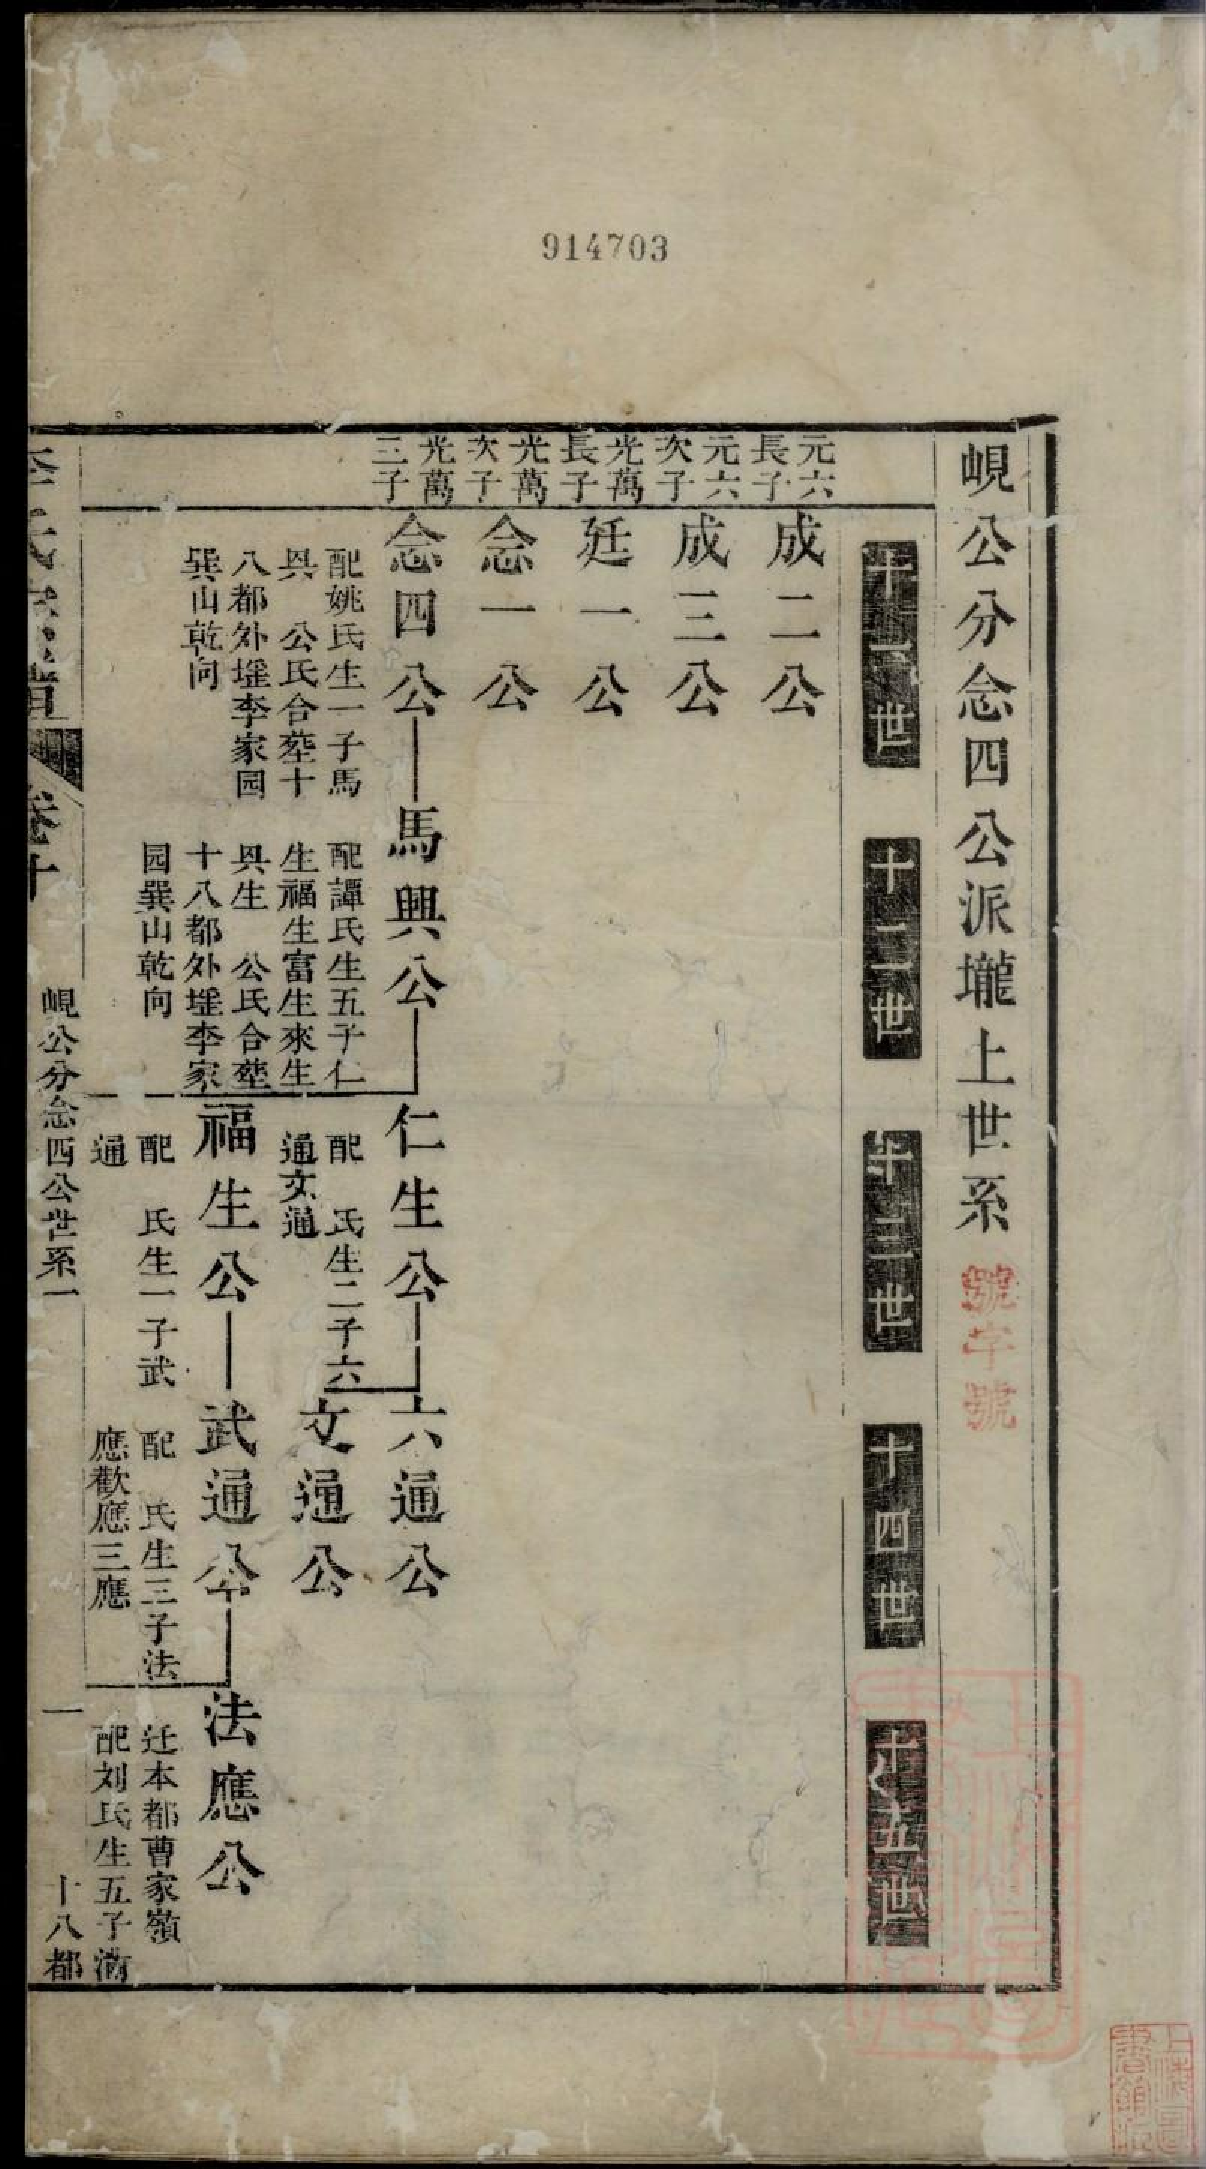 914703
峴公分念四公派壠上世系
號字號
十一世
十二世
十三世
十四世
十五世
元六
長子
成二公
元六
次子
成三公
光萬
長子
廷一公
光萬
次子
念一公
光萬
三子
念四公
馬興公
仁生公
六通公
配姚氏生一子馬
興　公氏合塟十
八都外塸李家园
巽山乾向
配譚氏生五子仁
生福生富生來生
興生　公氏合塟
十八都外塸李家
园巽山乾向
配　氏生二子六
通文通
文通公
福生公
武通公
法應公
配　氏生一子武
通
配　氏生三子法
應歡應三應
迁本都曹家嶺
配刘氏生五子
李氏宗譜
卷十
峴公分念四公世系一
一
十八都
上海圖書館藏